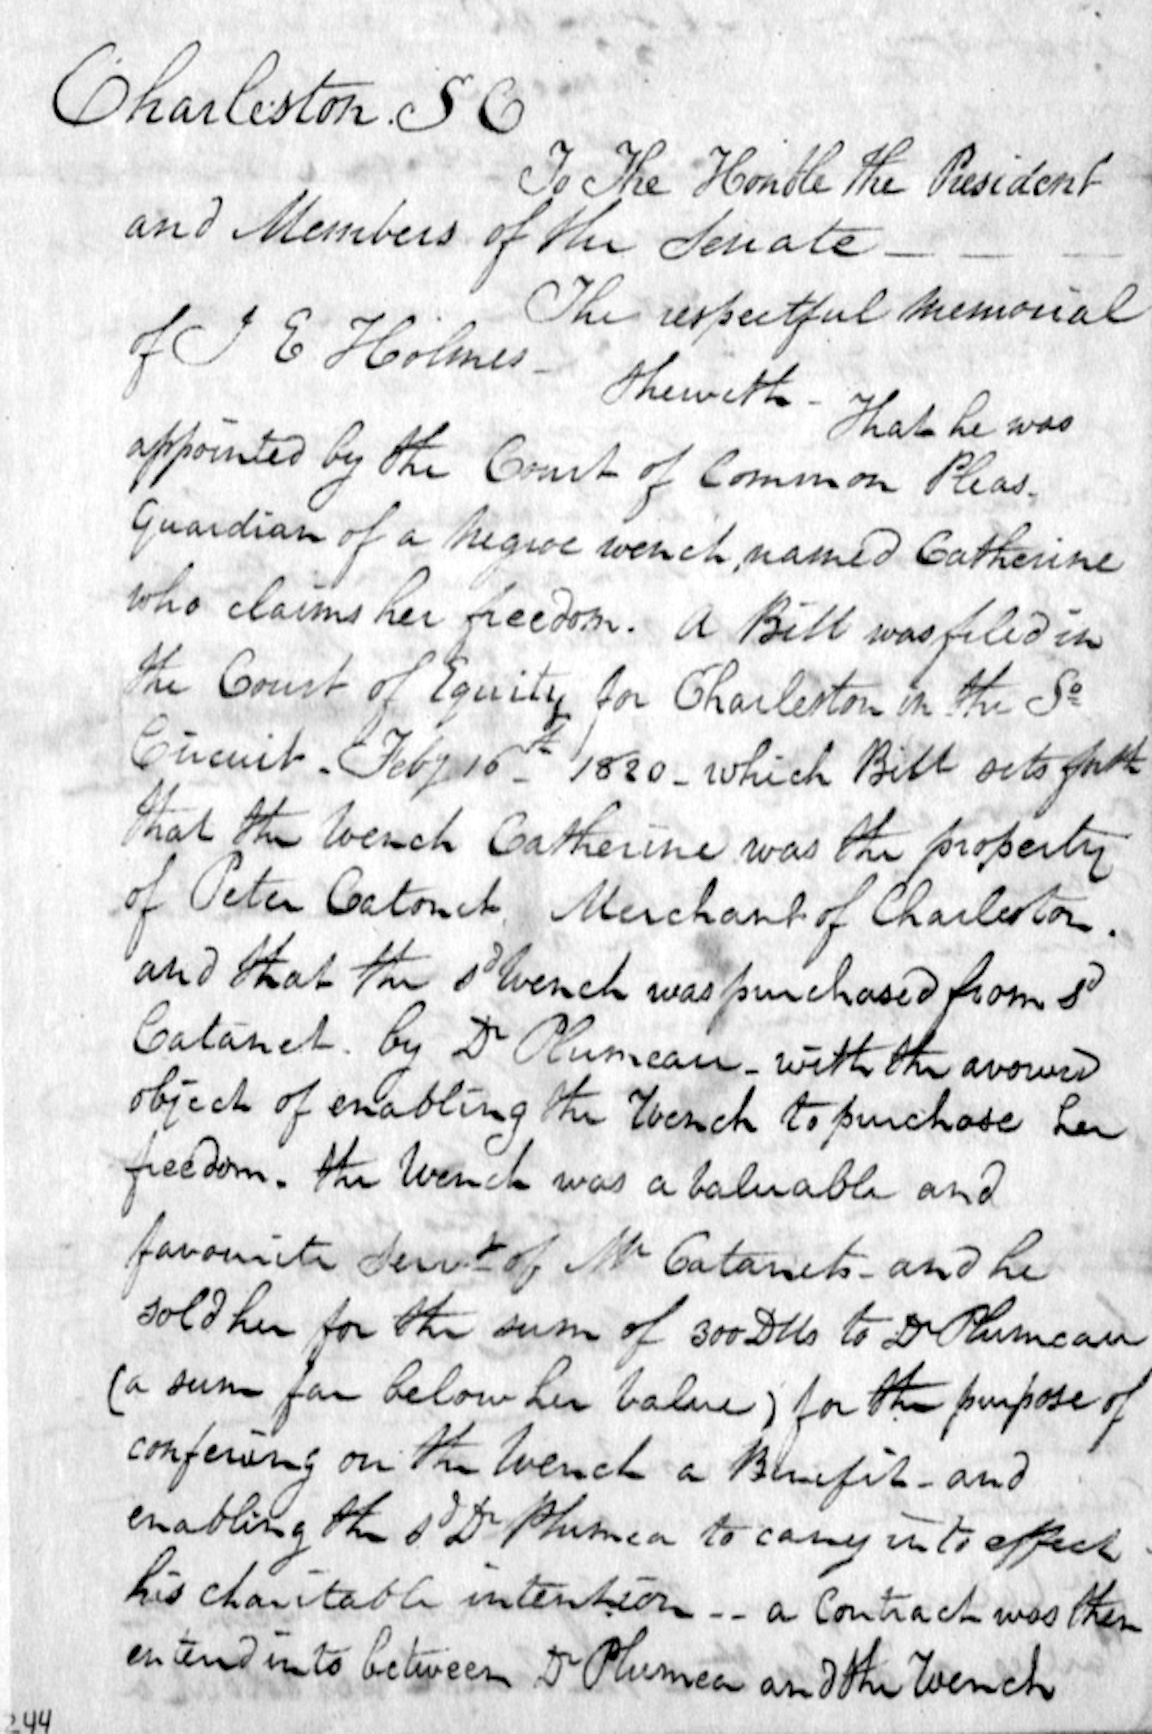 Charleston. S C
To The Honble the President
and Members of the Senate —
The respectful memorial
of I E Holmes —
Sheweth - That he was
appointed by the Court of Common Pleas.
Guardian of a Negroe wench, named Catherine
who claims her freedom. A Bill was filed in
the Court of Equity for Charleston in the So
Circuit - Feby 16th 1820 - which Bill sets forth
that the Wench Catherine was the property
of Peter Catonet, Merchant of Charleston.
and that the sd Wench was purchased from sd
Catanet. by Dr Plumeau - with the avowed
object of enabling the Wench to purchase her
freedom. the Wench was a valuable and
favourite Servt of Mr Catanets - and he
sold her for the sum of 300 Dlls to Dr Plumeau
(a sum far below her value) for the purpose of
confering on the Wench a Benefit - and
enabling the sd Dr Plumea to carry into effect
his charitable intention -- a Contract was then
enterd into between Dr Plumea and the Wench
244